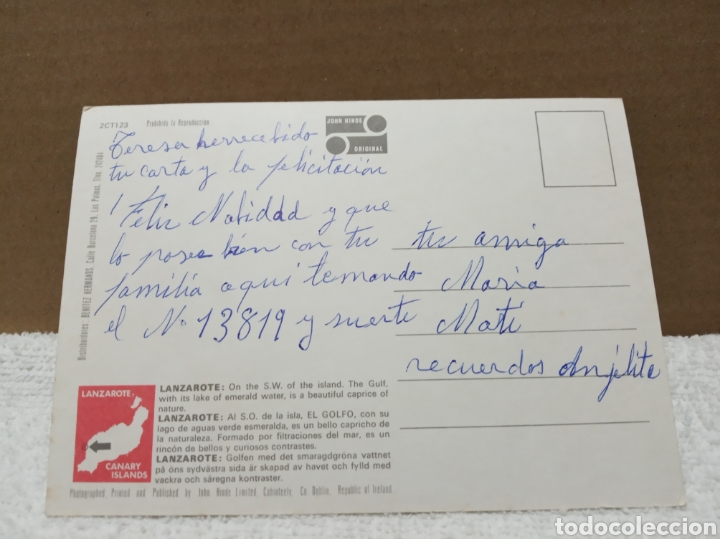 2CT123
Prohibida la Reproduccion
JOHN HINDE
ORIGINAL
Distribuidores: BENITEZ HERMANOS. Calle Barcelona 29, Las Palmas,
Teresa he rrecebido
tu carta y la felicitación
¡Feliz Nabidad y que
lo pases bien con tu
familia aqui te mando
el Nº 13819 y suerte
tu amiga
Maria
Mati
recuerdos Anjelita
LANZAROTE
CANARY
ISLANDS
LANZAROTE: On the S.W. of the island. The Gulf,
with its lake of emerald water, is a beautiful caprice of
nature.
LANZAROTE: Al S.O. de la isla, EL GOLFO, con su
lago de aguas verde esmeralda, es un bello capricho de
la naturaleza. Formado por filtraciones del mar, es un
rincón de bellos y curiosos contrastes.
LANZAROTE: Golfen med det smaragdgröna vattnet
på öns sydvästra sida är skapad av havet och fylld med
vackra och säregna kontraster.
Photographed, Printed and Published by John Hinde Limited, Cabinteely, Co. Dublin, Republic of Ireland.
todocoleccion